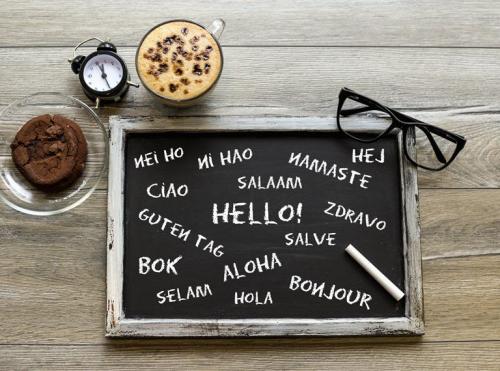 NEI HO
NI HAO
NAMASTE
HEJ
CIAO
SALAAM
GUTEN TAG
HELLO!
ZDRAVO
SALVE
BOK
ALOHA
SELAM
HOLA
BONJOUR